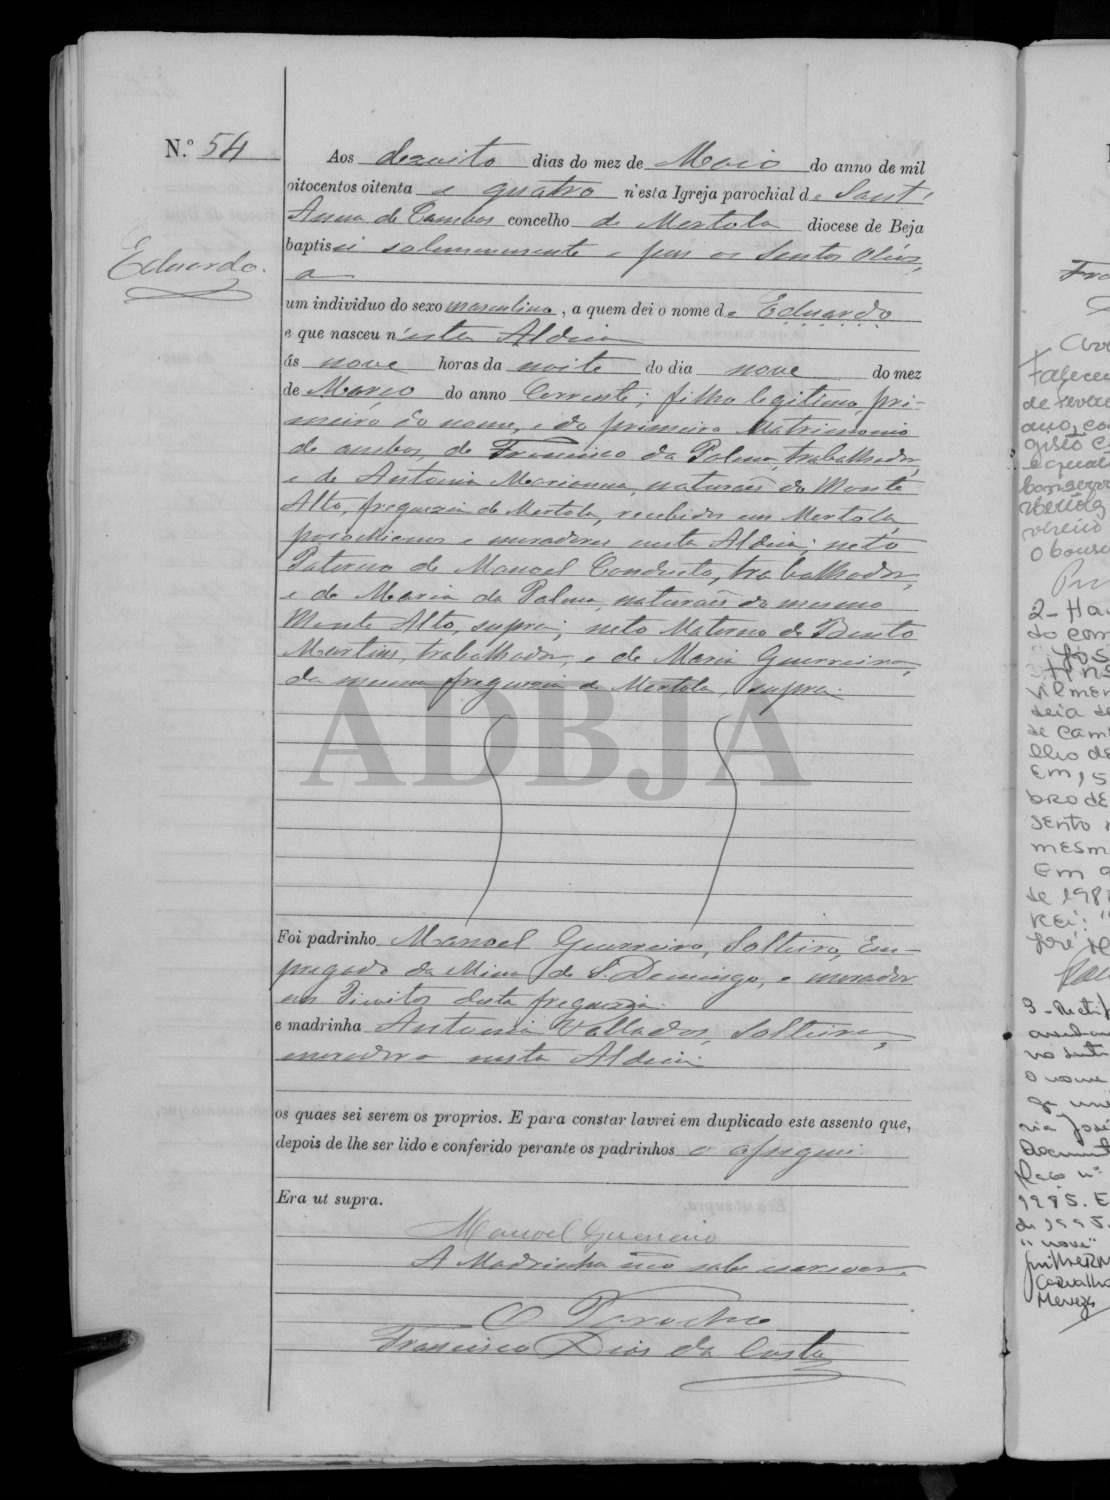 N.º 54
Aos dezoito dias do mez de Maio do anno de mil
oitocentos oitenta e quatro n'esta Igreja parochial de Sant'
Anna de Cambas concelho de Mertola diocese de Beja
baptisei solemnemente e puz os Santos Oleos,
a
Eduardo.
um individuo do sexo masculino, a quem dei o nome de Eduardo
e que nasceu n'esta Aldeia
ás nove horas da noite do dia nove do mez
de Março do anno Corrente; filho legitimo, pri-
meiro do nome, e do primeiro Matrimonio
de ambos, de Francisco da Palma, trabalhador,
e de Antonia Marianna, naturaes do Monte
Alto, freguezia de Mertola, recebidos em Mertola,
parochianos e moradores nesta Aldeia; neto
Paterno de Manoel Conduto, trabalhador,
e de Maria da Palma, naturaes do mesmo
Monte Alto, supra; neto Materno de Bento
Martins, trabalhador, e de Maria Guerreira,
da mesma freguezia de Mertola, supra.
ADBJA
Foi padrinho Manoel Guerreiro, Solteiro, Em-
pregado da Mina de S. Domingos, e morador
em desta freguezia.
e madrinha Antonia Vallados, Solteira,
moradora nesta Aldeia.
os quaes sei serem os proprios. E para constar lavrei em duplicado este assento que,
depois de lhe ser lido e conferido perante os padrinhos o assignei.
Era ut supra.
Manoel Guerreiro
A Madrinha não sabe escrever.
O Parocho
Francisco Dias da Costa
Fra
Faleceu
de
2- Ha
do com
José
vilmen
deia de
de Cam
lho de
Em, 5
bro de
sento
mesm
Em
de 198
Rei:
José
3-Rectif
no
o nome
ria José
Document
1995. E
de 1995.
"nove"
Guilherm
Carvalho
Menezes